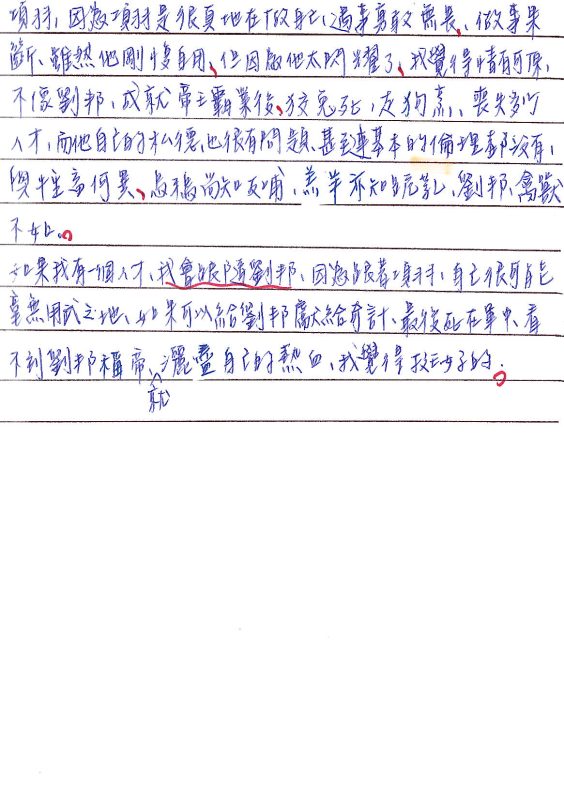 項羽,因為項羽是很真地在做自己,遇事勇敢無畏、做事果
斷、雖然他剛愎自用、但因為他太閃耀了、我覺得情有可原,
不像劉邦,成就帝王霸業後,狡兔死,走狗烹、喪失多少
人才,而他自己的私德,也很有問題、甚至連基本的倫理都沒有,
與牲畜何異、烏鴉尚知反哺、羔羊亦知跪乳、劉邦,禽獸
不如。
如果我有一個人才、我會跟隨劉邦、因為跟著項羽,自己很可能
毫無用武之地、如果可以給劉邦獻給奇計、最後死在軍中、看
不到劉邦稱帝、就灑盡自己的熱血、我覺得挺好的。